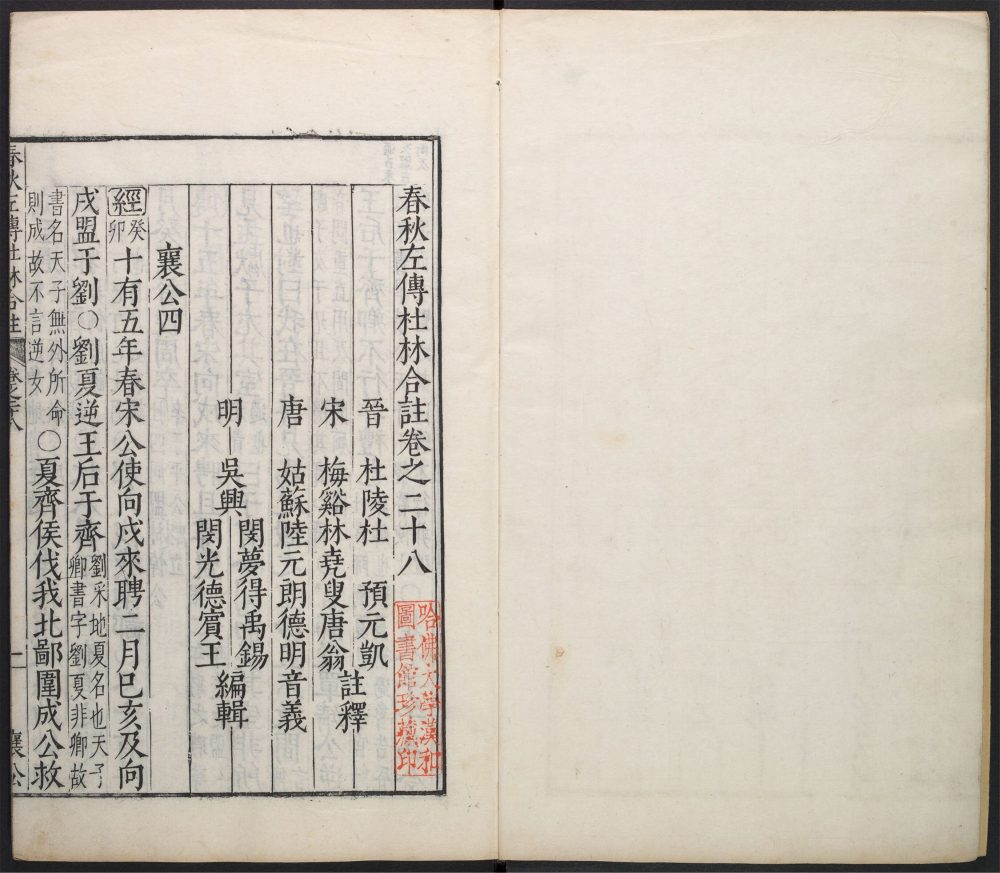 春秋左傳杜林合註卷之二十八
哈佛大學漢和
圖書館珍藏印
晉 杜陵杜 預元凱
宋 梅谿林堯叟唐翁
註釋
唐 姑蘇陸元朗德明音義
明 吳興
閔夢得禹錫
閔光德賓王
編輯
襄公四
經癸卯十有五年春宋公使向戌來聘二月己亥及向
戌盟于劉○劉夏逆王后于齊劉采地夏名也天子卿書字劉夏非卿故
書名天子無外所命則成故不言逆女○夏齊侯伐我北鄙圍成公救
春秋左傳杜林合註 卷之二十八 一 襄公